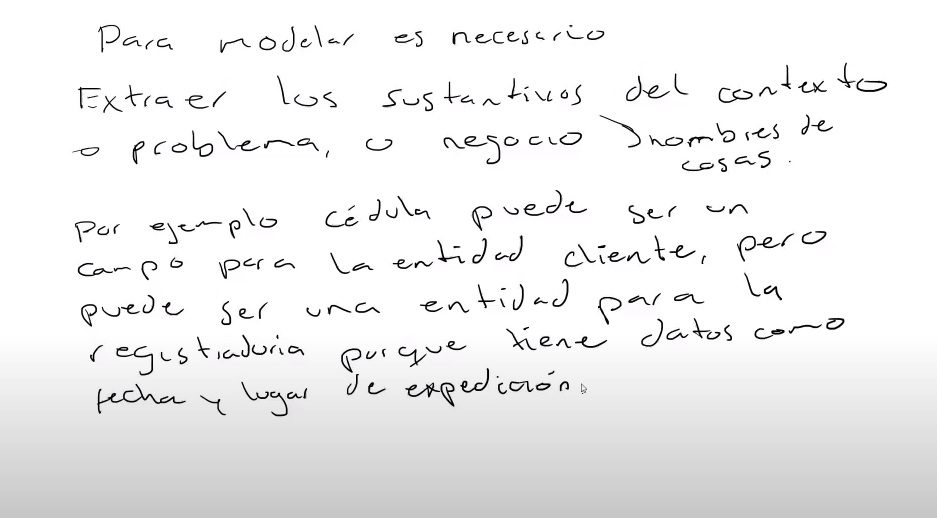 Para modelar es necesario
Extraer los sustantivos del contexto
o problema, o negocio nombres de
cosas.
Por ejemplo cédula puede ser un
campo para la entidad cliente, pero
puede ser una entidad para la
registraduria porque tiene datos como
fecha y lugar de expedición.